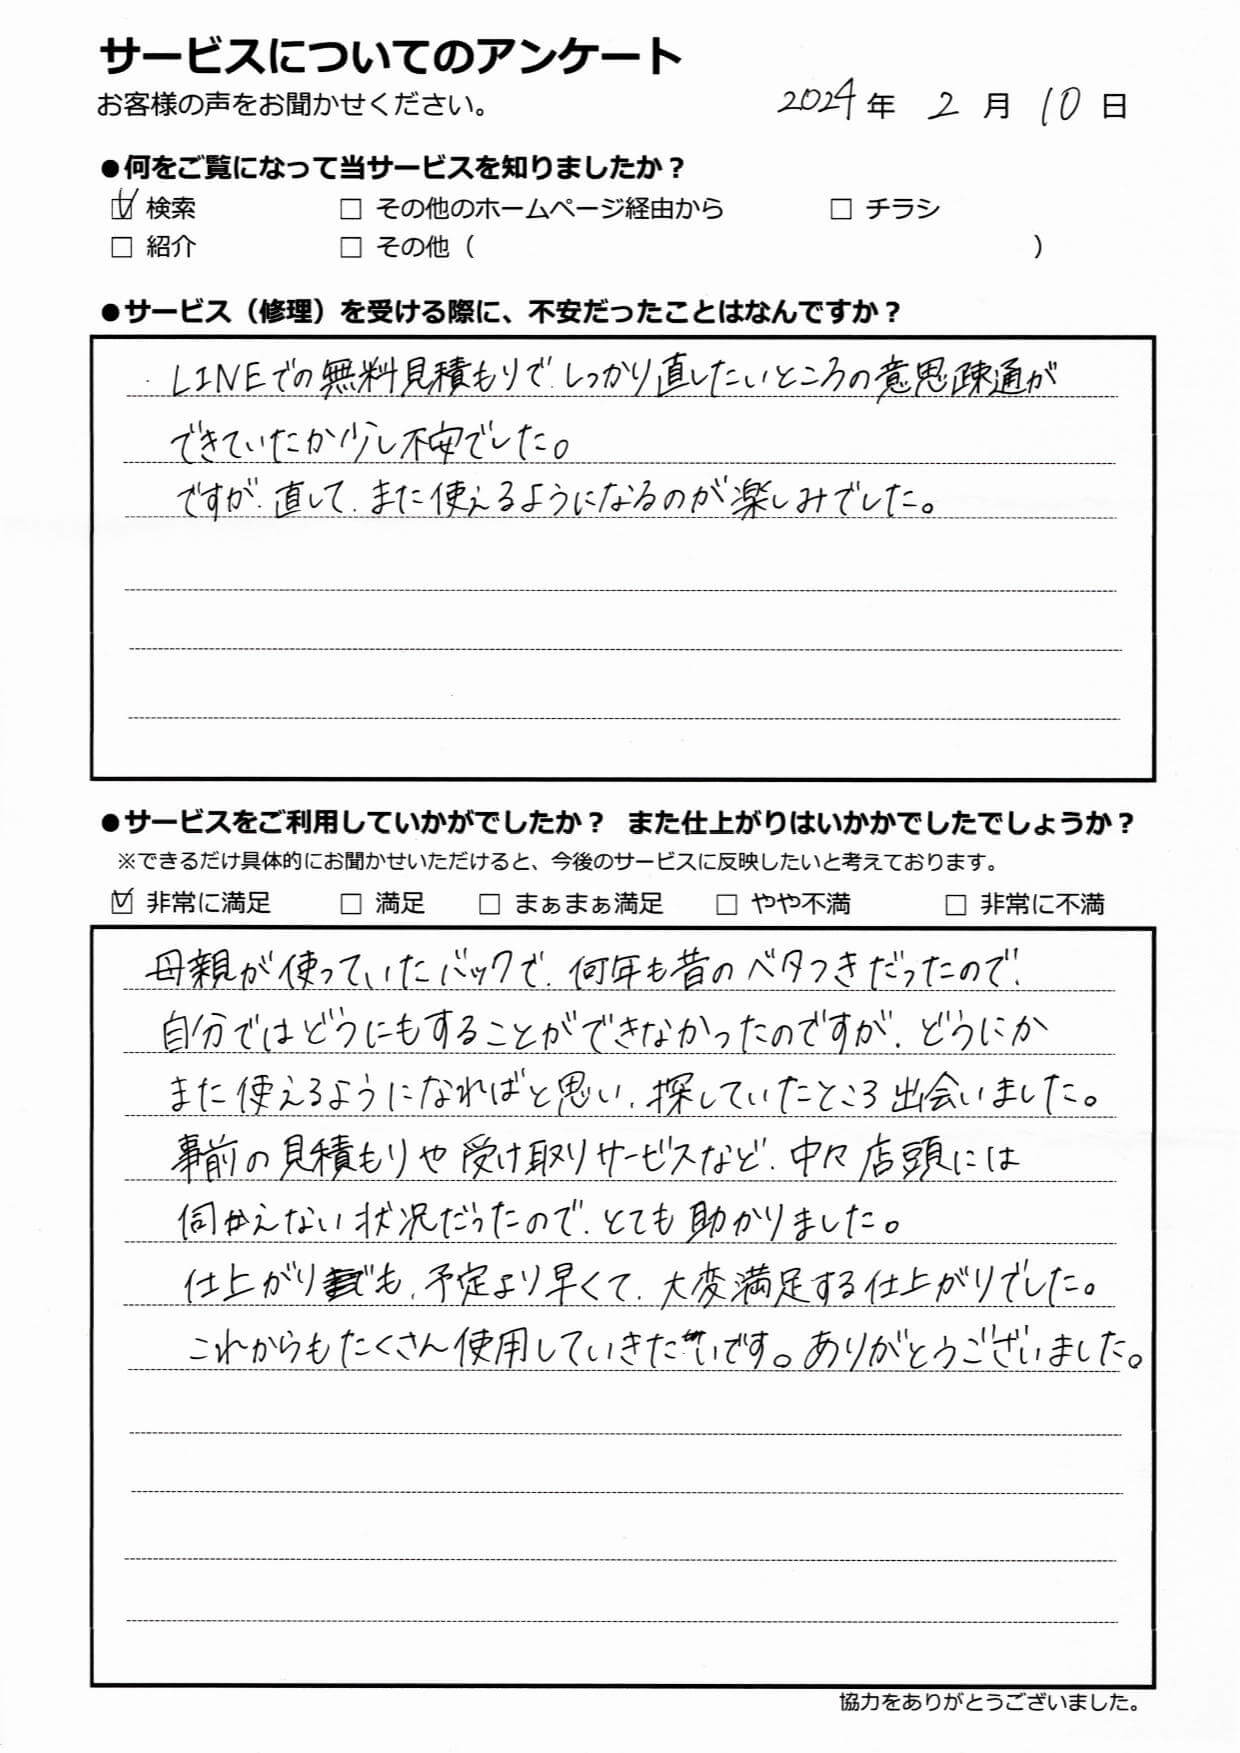 サービスについてのアンケート
お客様の声をお聞かせください。
2024年 2月 10日
●何をご覧になって当サービスを知りましたか?
☑ 検索 □ その他のホームページ経由から □ チラシ
□ 紹介 □ その他 ( )
●サービス(修理)を受ける際に、不安だったことはなんですか?
LINEでの無料見積もりで、しっかり直したいところの意思疎通が
できていたか少し不安でした。
ですが、直して、また使えるようになるのが楽しみでした。
●サービスをご利用していかがでしたか? また仕上がりはいかかでしたでしょうか?
※できるだけ具体的にお聞かせいただけると、今後のサービスに反映したいと考えております。
☑ 非常に満足 □ 満足 □ まぁまぁ満足 □ やや不満 □ 非常に不満
母親が使っていたバックで、何年も昔のベタつきだったので、
自分ではどうにもすることができなかったのですが、どうにか
また使えるようになればと思い、探していたところ出会いました。
事前の見積もりや受け取りサービスなど、中々店頭には
伺えない状況だったので、とても助かりました。
仕上がりも、予定より早くて、大変満足する仕上がりでした。
これからもたくさん使用していきたいです。ありがとうございました。
協力をありがとうございました。